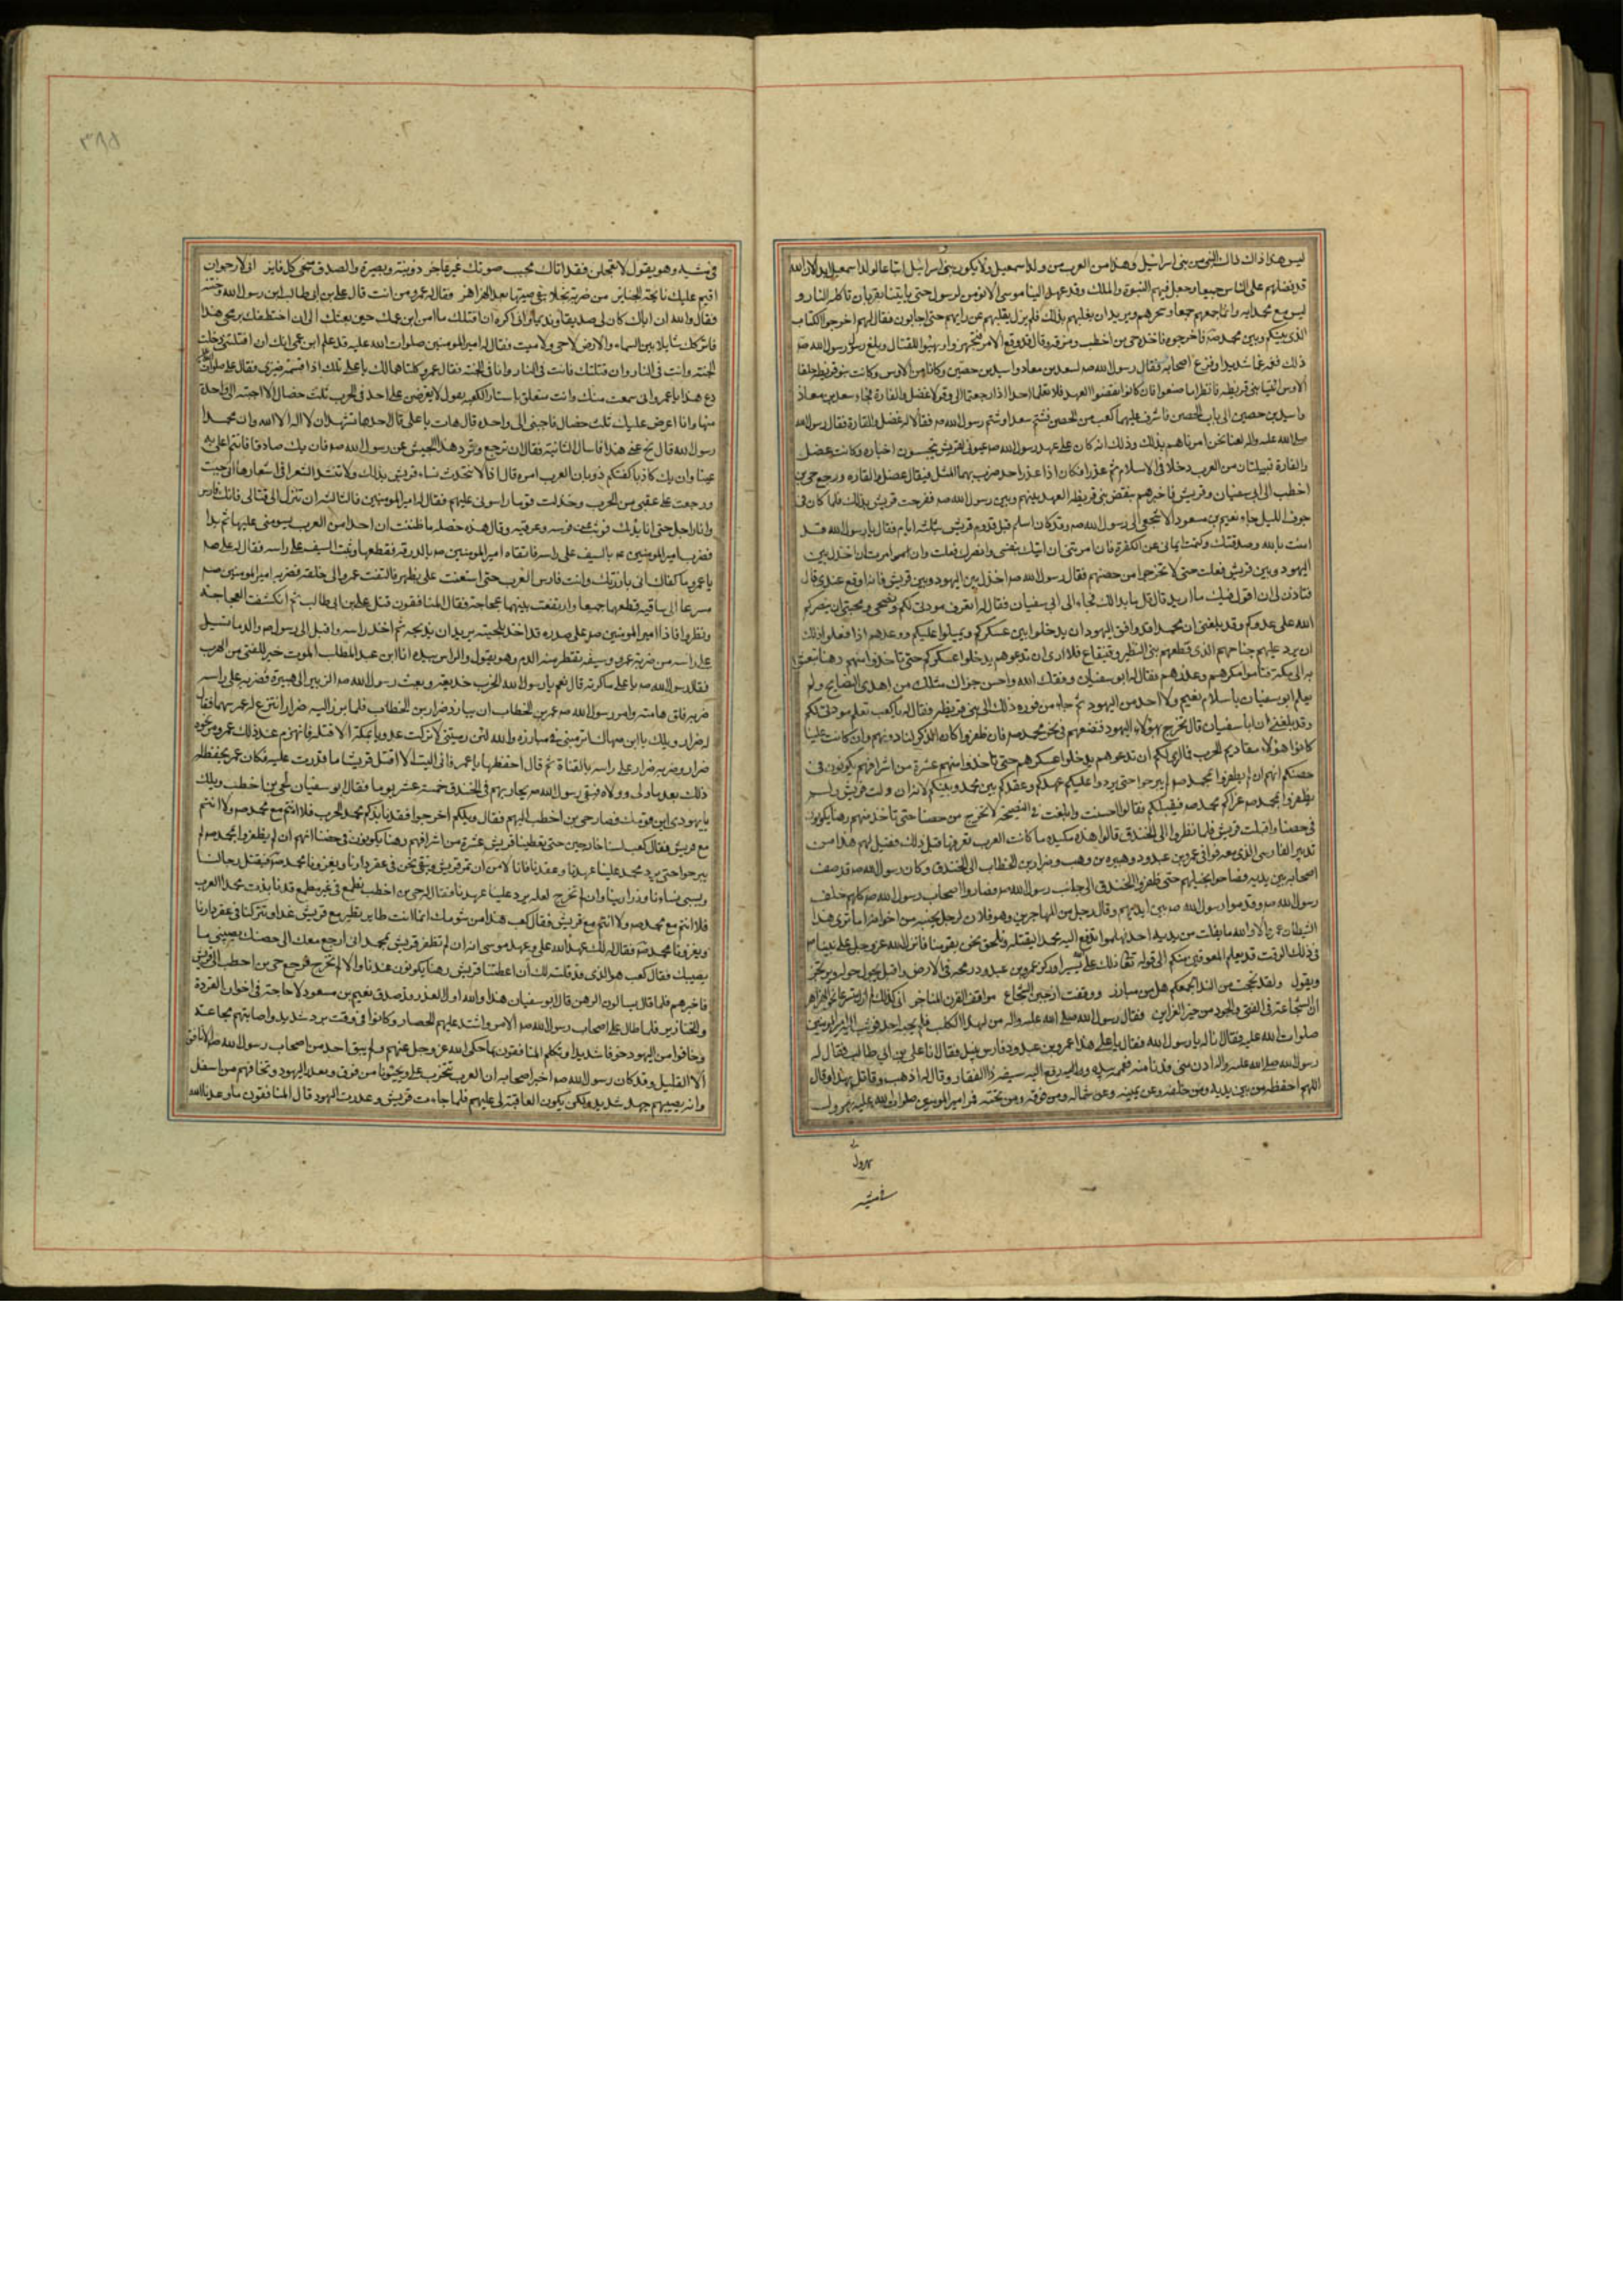 ليس هذا ذاك ذاك النبي من بني اسرائيل وهذا من العرب من ولد اسمعيل ولا يكون بنو اسرائيل اتباعا لولد اسمعيل ابدا لان الله
قد فضلهم على الناس جميعا وجعل فيهم النبوة والملك وقد عهد الينا موسى الا نؤمن لرسول حتى ياتينا بقربان تاكله النار و
ليس مع محمد اية وانما جمعهم جمعا وسحرهم ويريد ان يغلبهم بذلك فلم يزل يقلبهم عن رايهم حتى اجابوه فقال لهم اخرجوا الكتاب
الذي بينكم وبين محمد فاخرجوه فاخذه حي بن اخطب ومزقه وقال قد وقع الامر فتجهزوا وتهيؤا للقتال وبلغ رسول الله
ذلك فغمه غما شديدا وفزع اصحابه فقال رسول الله لسعد بن معاذ واسيد بن حصين وكانا من الاوس وكانت بنو قريظة حلفا
الاوس ائتيا بني قريظة فانظرا ما صنعوا فان كانوا نقضوا العهد فلا تعلما احدا اذا رجعتما الي وقولا عضل والقارة فجاء سعد بن معاذ
واسيد بن حصين الى باب الحصن فاشرف عليهما كعب من الحصن فشتم سعدا وشتم رسول الله
صلى الله عليه واله لعنا نحن امرناهم بذلك وذلك انه كان على عهد رسول الله عيون لقريش يتجسسون اخباره وكانت عضل
والقارة قبيلتان من العرب دخلا في الاسلام ثم غدرا فكان اذا غدر احد ضرب بهما المثل فيقال عضل والقارة ورجع حي بن
اخطب الى ابي سفيان وقريش فاخبرهم بنقض بني قريظة العهد بينهم وبين رسول الله ففرحت قريش بذلك فلما كان في
جوف الليل جاء نعيم بن مسعود الاشجعي الى رسول الله وقد كان اسلم قبل قدوم قريش بثلثة ايام فقال يا رسول الله قد
امنت بالله وصدقتك وكتمت ايماني عن الكفرة فان امرتني ان اتيك بنفسي وانصرك فعلت وان امرت ان اخذل بين
اليهود وبين قريش فعلت حتى لا تخرجوا من حصنهم فقال رسول الله اخذل بين اليهود وبين قريش فانه اوقع عندي قال
فتاذن لي ان اقول فيك ما اريد قال قل ما بدا لك فجاء الى ابي سفيان فقال له تعرف مودتي لكم ونصحي ومحبتي ان ينصركم
الله على عدوكم وقد بلغني ان محمدا قد وافق اليهود ان يدخلوا بين عسكركم ويميلوا عليكم ووعدهم اذا فعلوا ذلك
ان يرد عليهم جناحهم الذي قطعه بني النضير وقينقاع فلا ارى ان تدعوهم يدخلوا عسكركم حتى تاخذوا منهم رهنا تبعثوا
به الى مكة فتامنوا مكرهم وغدرهم فقال له ابو سفيان وفقك الله واحسن جزاك مثلك من اهدى النصايح ولم
يعلم ابو سفيان باسلام نعيم ولا احد من اليهود ثم جاء من فوره ذلك الى بني قريظة فقال له يا كعب تعلم مودتي لكم
وقد بلغني ان ابا سفيان قال نخرج هؤلاء اليهود فنضعهم في نحر محمد فان ظفروا كان الذكر لنا دونهم وان كانت علينا
كانوا هؤلاء مقاديم الحرب فلا ارى لكم ان تدعوهم يدخلوا عسكركم حتى تاخذوا منهم عشرة من اشرافهم يكونون في
حصنكم انهم ان لم يظفروا بمحمد لم يبرحوا حتى يردوا عليكم عهدكم وعقدكم بين محمد وبينكم لانه ان ولت قريش ولم
يظفروا بمحمد غزاكم محمد فيقتلكم فقالوا احسنت وابلغت في النصيحة لا نخرج من حصننا حتى ناخذ منهم رهنا يكونون
في حصننا واقبلت قريش فلما نظروا الى الخندق قالوا هذه مكيدة ما كانت العرب تعرفها قبل ذلك فقيل لهم هذا من
تدبير الفارسي الذي معه فوافى عمرو بن عبدود وهبيرة بن وهب وضرار بن الخطاب الى الخندق وكان رسول الله قد صف
اصحابه بين يديه فصاحوا بخيلهم حتى طفروا الخندق الى جانب رسول الله فصاروا اصحاب رسول الله كلهم خلف
رسول الله وقدموا رسول الله بين ايديهم وقال رجل من المهاجرين وهو فلان لرجل بجنبه من اخوانه اما ترى هذا
الشيطان عمرو لا والله ما يفلت من يديه احد فهلموا ندفع اليه محمدا ليقتله ونلحق نحن بقومنا فانزل الله عز وجل على نبيه
في ذلك الوقت قد يعلم الله المعوقين منكم الى قوله وكان ذلك على الله يسيرا وركز عمرو بن عبدود رمحه في الارض واقبل يجول حوله ويرتجز
ويقول ولقد بححت من الندا بجمعكم هل من مبارز ووقفت اذ جبن الشجاع مواقف القرن المناجز اني كذلك لم ازل متسرعا نحو الهزاهز
ان الشجاعة في الفتى والجود من خير الغرايز فقال رسول الله صلى الله عليه واله من لهذا الكلب فلم يجبه احد فوثب اليه امير المومنين
صلوات الله عليه فقال انا له يا رسول الله فقال يا علي هذا عمرو بن عبدود فارس يليل فقال انا علي بن ابي طالب فقال له
رسول الله صلى الله عليه واله ادن مني فدنا منه فعممه بيده ودفع اليه سيفه ذا الفقار وقال له اذهب وقاتل بهذا وقال
اللهم احفظه من بين يديه ومن خلفه وعن يمينه وعن شماله ومن فوقه ومن تحته فمر امير المومنين صلوات الله عليه يهرول
يهرول
في مشيه وهو يقول لا تعجلن فقد اتاك مجيب صوتك غير عاجز ذو نية وبصيرة والصدق منجي كل فايز اني لارجو ان
اقيم عليك نائحة الجنايز من ضربة نجلاء يبقى صيتها بعد الهزاهز فقال له عمرو من انت قال علي بن ابي طالب ابن عم رسول الله وختنه
فقال والله ان اباك كان لي صديقا ونديما واني اكره ان اقتلك ما امن ابن عمك حين بعثك الي ان اختطفك برمحي هذا
فاتركك شايلا بين السماء والارض لا حي ولا ميت فقال له امير المومنين صلوات الله عليه قد علم ابن عمي انك ان قتلتني دخلت
الجنة وانت في النار وان قتلتك فانت في النار وانا في الجنة فقال عمرو كلتاهما لك يا علي تلك اذا قسمة ضيزى فقال علي صلوات الله عليه
دع هذا يا عمرو اني سمعت منك وانت متعلق باستار الكعبة تقول لا يعرضن علي احد في الحرب ثلث خصال الا اجبته الى واحدة
منها وانا اعرض عليك ثلث خصال فاجبني الى واحدة قال هات يا علي قال احدها تشهد ان لا اله الا الله وان محمدا
رسول الله قال نح عني هذا فاسال الثانية فقال ان ترجع وترد هذا الجيش عن رسول الله فان يك صادقا فانتم اعلى به
عينا وان يك كاذبا كفتكم ذوبان العرب امره قال اذا لا تتحدث نساء قريش بذلك ولا تنشد الشعراء في اشعارها اني جبنت
ورجعت على عقبي من الحرب وخذلت قوما راسوني عليهم فقال له امير المومنين فالثالثة ان تنزل الي قتالي فانك فارس
وانا راجل حتى انابذك فوثب عن فرسه وعرقبه وقال هذه خصلة ما ظننت ان احدا من العرب يسومني عليها ثم بدا
فضرب امير المومنين بالسيف على راسه فاتقاه امير المومنين بالدرقة فقطعها وثبت السيف على راسه فقال له علي
يا عمرو ما كفاك اني بارزتك وانت فارس العرب حتى استعنت علي بظهير فالتفت عمرو الى خلفه فضربه امير المومنين
مسرعا الى ساقيه قطعهما جميعا وارتفعت بينهما عجاجة فقال المنافقون قتل علي بن ابي طالب ثم انكشفت العجاجة
ونظروا فاذا امير المومنين على صدره قد اخذ بلحيته يريد ان يذبحه ثم اخذ راسه واقبل الى رسول الله والدما تسيل
على راسه من ضربة عمرو وسيفه تقطر منه الدم وهو يقول والراس بيده انا ابن عبد المطلب الموت خير للفتى من الهرب
فقال رسول الله يا علي ماكرته قال نعم يا رسول الله الحرب خديعة وبعث رسول الله الزبير الى هبيرة فضربه على راسه
ضربة فلق هامته وامر رسول الله عمر بن الخطاب ان يبارز ضرار بن الخطاب فلما برز اليه ضرار انتزع له عمر سهما فقال
له ضرار ويلك يا ابن صهاك اترميني في مبارزة والله لئن رميتني لا تركت عدويا بمكة الا قتلته فانهزم عند ذلك عمر ومر نحوه
ضرار وضربه ضرار على راسه بالقناة ثم قال احفظها يا عمر فاني اليت الا اقتل قريشيا ما قدرت عليه فكان عمر يحفظ له
ذلك بعد ما ولي وولاه فبقي رسول الله يحاربهم في الخندق خمسة عشر يوما فقال ابو سفيان لحي بن اخطب ويلك
يا يهودي اين قومك فصار حي بن اخطب اليهم فقال ويلكم اخرجوا فقد نابذكم محمد الحرب فلا انتم مع محمد ولا انتم
مع قريش فقال كعب لسنا خارجين حتى يعطينا قريش عشرة من اشرافهم رهنا يكونون في حصننا انهم ان لم يظفروا بمحمد لم
يبرحوا حتى يرد محمد علينا عهدنا وعقدنا فانا لا من ان تفر قريش ونبقى نحن في عقر دارنا ويغزونا محمد فيقتل رجالنا
ويسبي نساءنا وذرارينا وان لم نخرج لعله يرد علينا عهدنا فقال له حي بن اخطب تطمع في غير مطمع قد نابذت محمدا العرب
فلا انتم مع محمد ولا انتم مع قريش فقال كعب هذا من شومك انما انت طاير تطير مع قريش غدا وتتركنا في عقر دارنا
ويغزونا محمد فقال له لك عهد الله علي وعهد موسى انه ان لم تظفر قريش بمحمد اني ارجع معك الى حصنك يصيبني ما
يصيبك فقال كعب هو الذي قد قلته لك ان اعطتنا قريش رهنا يكونون عندنا والا لم نخرج فرجع حي بن اخطب الى قريش
فاخبرهم فلما قال يسالون الرهن قال ابو سفيان هذا والله اول الغدر قد صدق نعيم بن مسعود لا حاجة في اخوان القردة
والخنازير فلما طال على اصحاب رسول الله الامر واشتد عليهم الحصار وكانوا في وقت برد شديد واصابتهم مجاعة
وخافوا من اليهود خوفا شديدا وتكلم المنافقون بما حكى الله عز وجل عنهم ولم يبق احد من اصحاب رسول الله الا نافق
الا القليل وقد كان رسول الله اخبر اصحابه ان العرب تتحزب علي ويجيئونا من فوق وتغدر اليهود ونخافهم من اسفل
وانه يصيبهم جهد شديد ولكن يكون العاقبة لي عليهم فلما جاءت قريش وغدرت اليهود قال المنافقون ما وعدنا الله